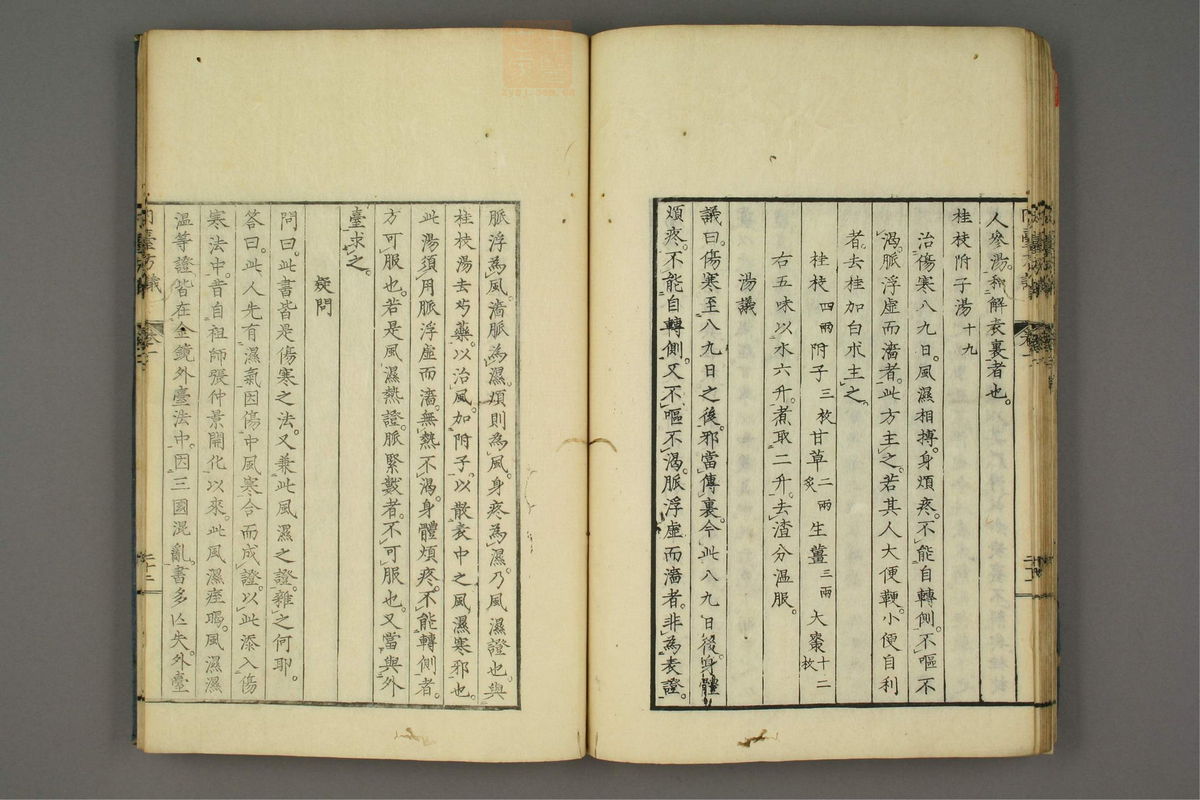 人參湯。和解表裏者也。
桂枝附子湯 十九
治傷寒八九日。風濕相搏。身煩疼。不能自轉側。不嘔不
渴。脈浮虛而濇者。此方主之。若其人大便鞕。小便自利
者。去桂加白朮主之。
桂枝四兩 附子三枚 甘草二兩炙 生薑三兩 大棗十二枚
右五味。以水六升。煮取二升。去渣分溫服。
湯議
議曰。傷寒至八九日之後。邪當傳裏。今此八九日後。身體
煩疼。不能自轉側。又不嘔不渴。脈浮虛而濇者。非為表證。
脈浮為風。濇脈為濕。煩則為風。身疼為濕。乃風濕證也。與
桂枝湯去芍藥。以治風。加附子。以散表中之風濕寒邪也。
此湯。須用脈浮虛而濇。無熱不渴。身體煩疼。不能轉側者。
方可服也。若是風濕熱證。脈緊數者。不可服也。又當與外
臺求之。
疑問
問曰。此書皆是傷寒之法。又兼此風濕之證。雜之何耶。
答曰。此人先有濕氣。因傷中風寒合而成證。以此添入傷
寒法中。昔自祖師張仲景開化以來。此風濕痙暍。風濕濕
溫等證。皆在金鏡外臺法中。因三國混亂。書多亾失。外臺